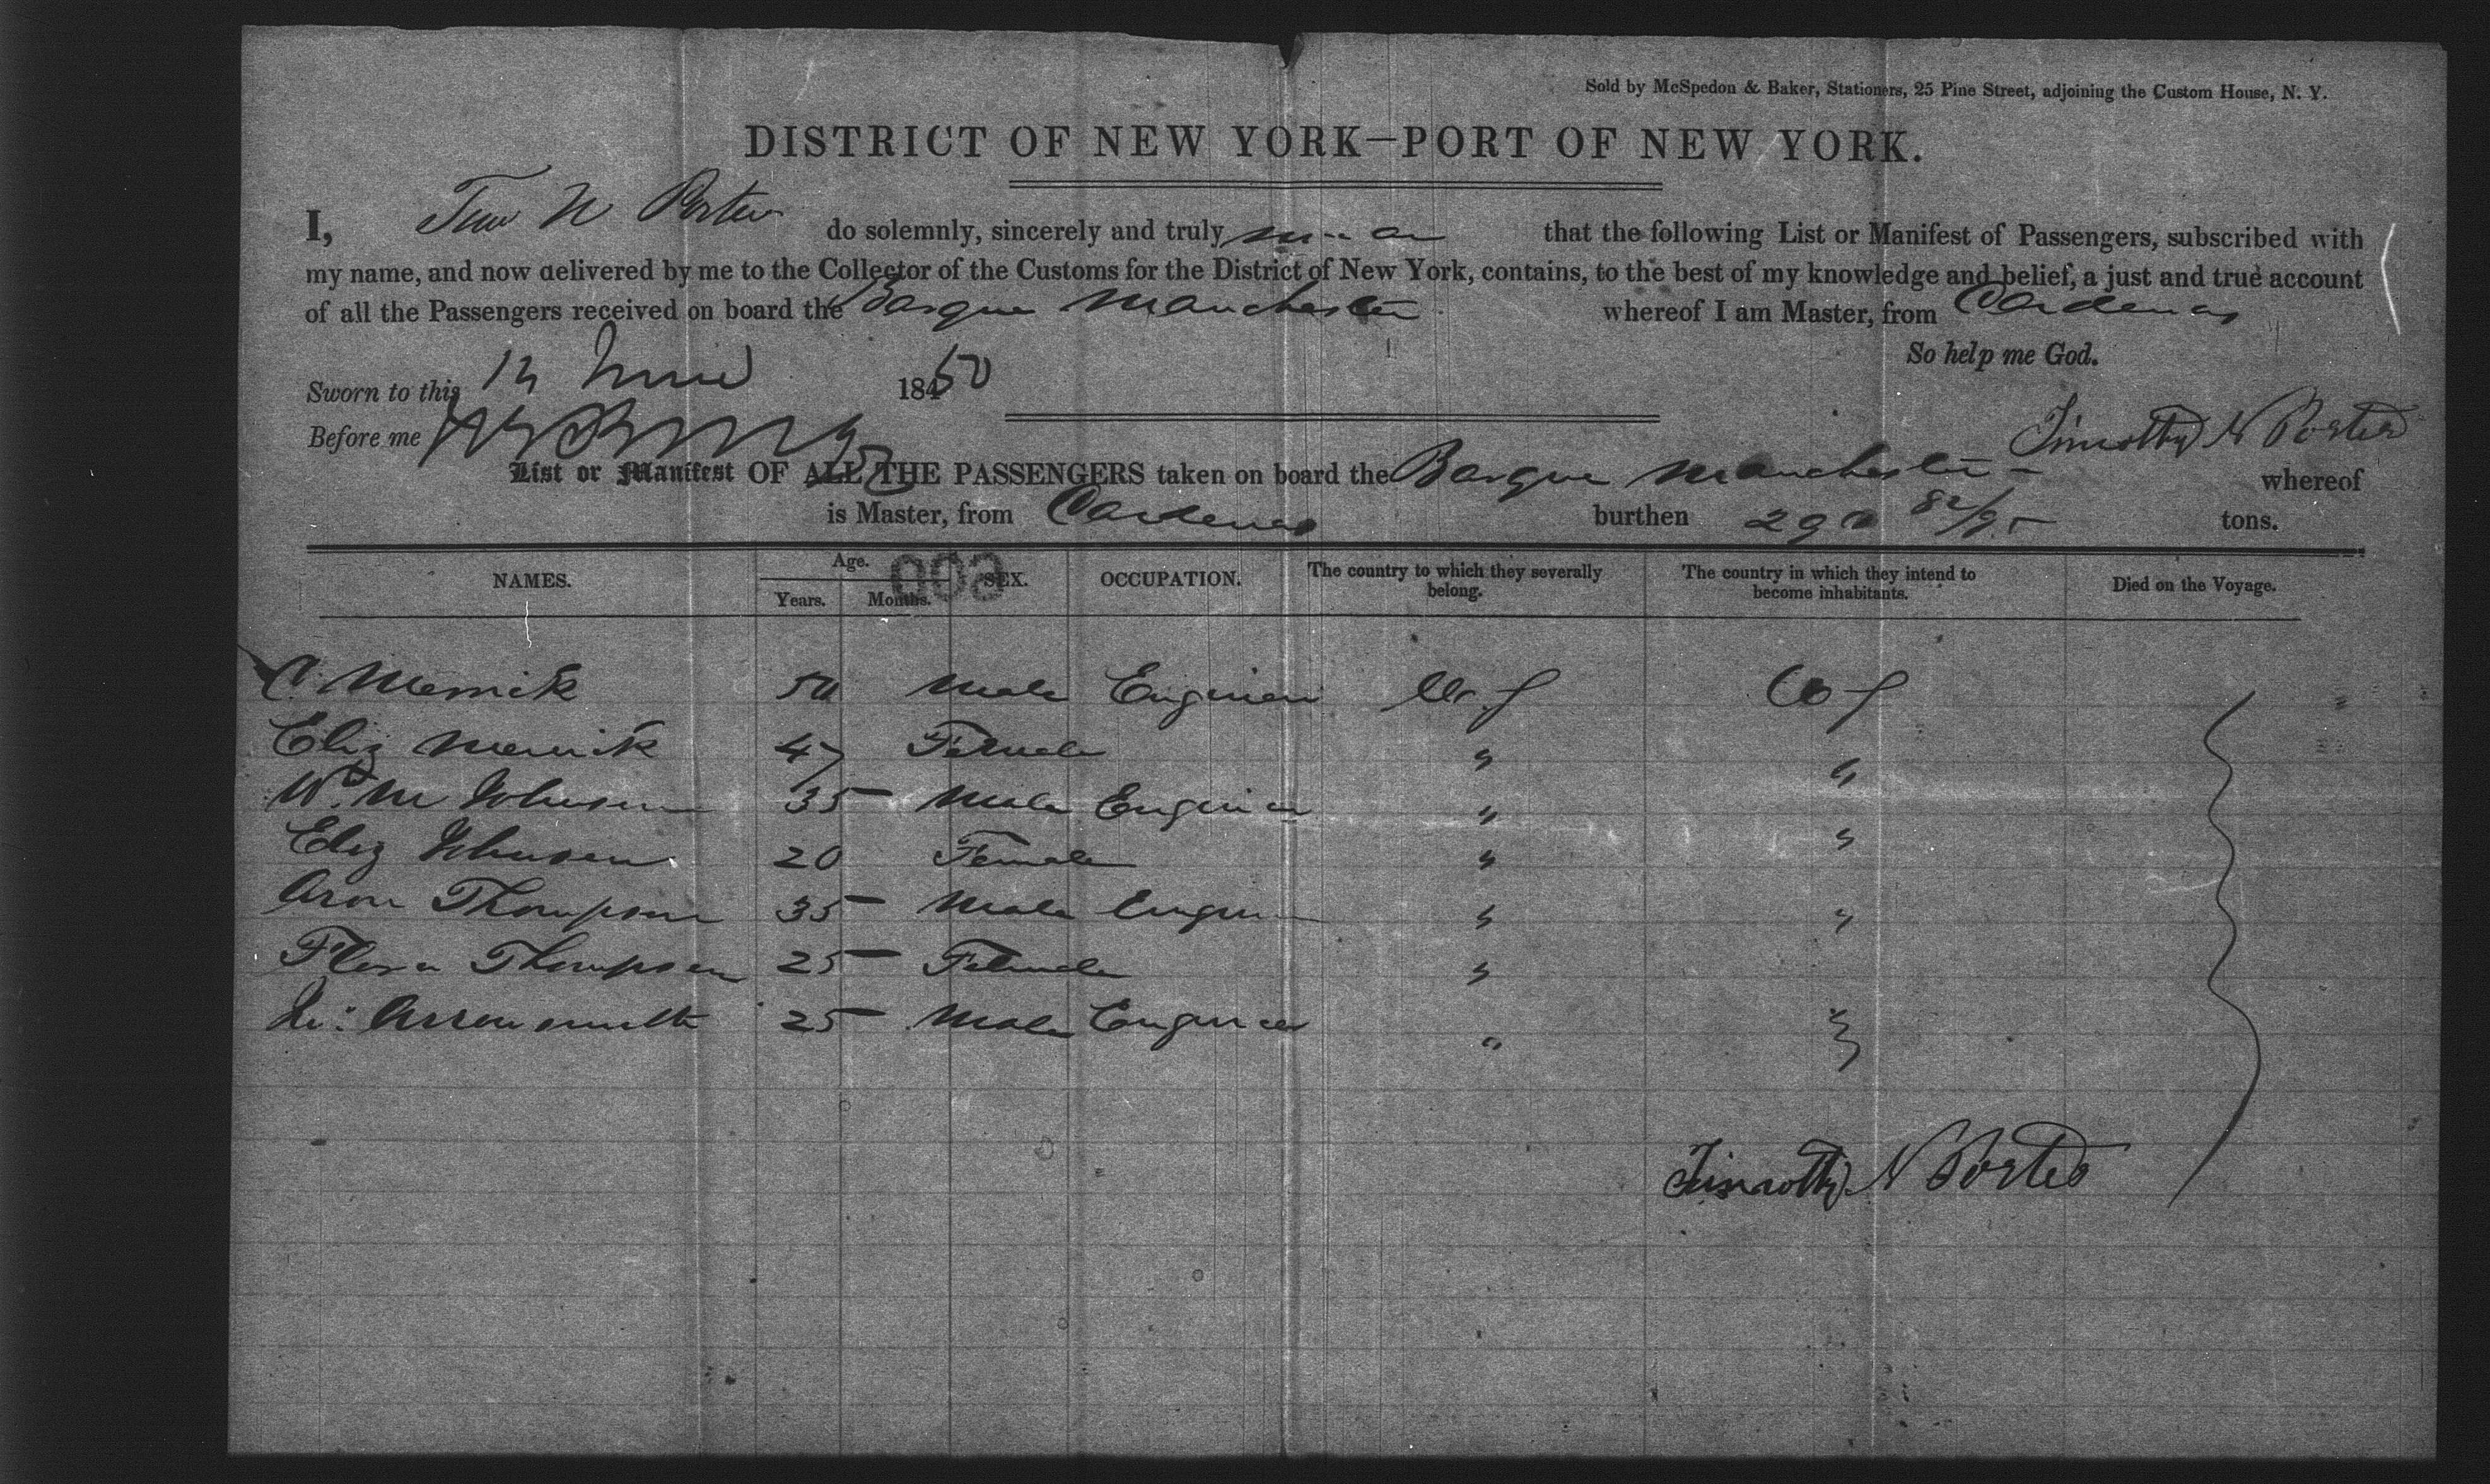 Sold by McSpedon & Baker, Stationers, 25 Pine Street, adjoining the Custom House, N. Y.
DISTRICT OF NEW YORK—PORT OF NEW YORK.
I, N Porter do solemnly, sincerely and truly that the following List or Manifest of Passengers, subscribed with
my name, and now delivered by me to the Collector of the Customs for the District of New York, contains, to the best of my knowledge and belief, a just and true account
of all the Passengers received on board the Barque Manchester whereof I am Master, from Cardenas
So help me God.
Sworn to this June 18450
Before me
Timothy N Porter
List or Manifest OF ALL THE PASSENGERS taken on board the Barque Manchester whereof
is Master, from Cardenas burthen 82/95 tons.
NAMES. Age. SEX. OCCUPATION. The country to which they severally belong. The country in which they intend to become inhabitants. Died on the Voyage.
Years. Months.
C. Merrick 50 Male Engineer U S U S
Eliz Merrick 47 Female " "
Wm M Johnson 35 Male Engineer " "
Eliz Johnson 20 Female " "
Aron Thompson 35 Male Engineer " "
Flora Thompson 25 Female "
Arrowsmith 25 Male Engineer " "
Timothy N Porter